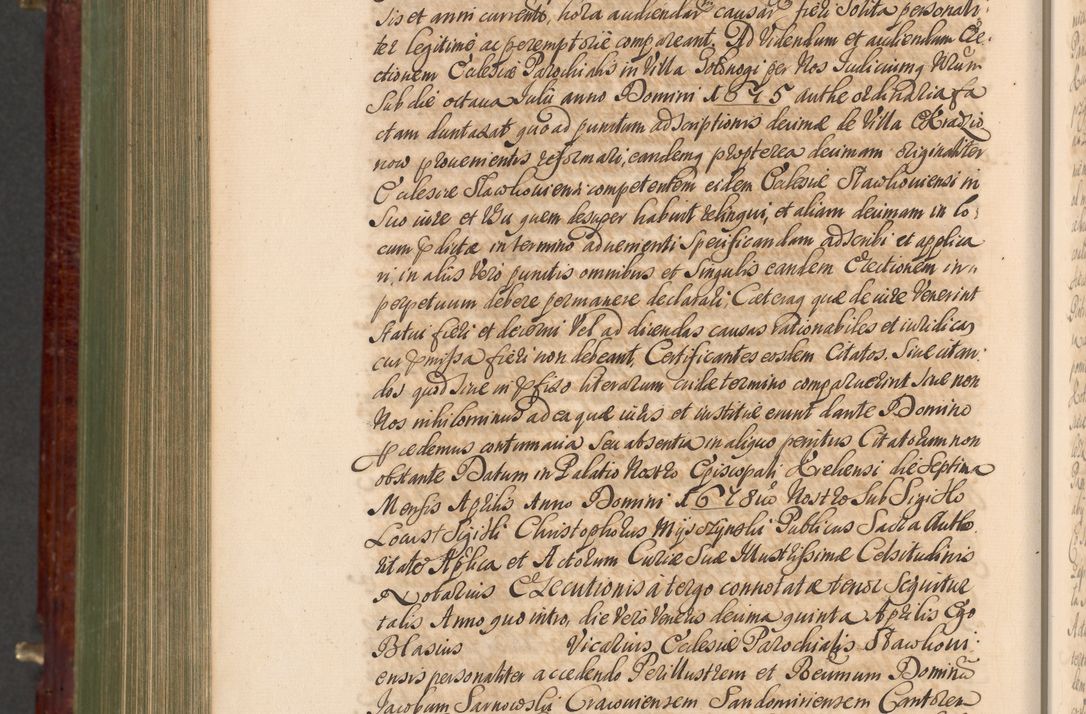 sis et anni currentis, hora audiendar causar fieri solita personali
ter legitime ac peremptorie compareant. Ad Videndum et audiendum Ere
ctionem Ecclesiæ Parochialis in Villa Gołonogi per Nos Judiciumq Nrum
Sub die octava Julii anno Domini 1675 authe ordinaria fa
ctam duntaxat quo ad punctum adscriptionis decimæ de Villa
now provenientis reformari, eandemq propterea decimam originaliter
Ecclesiæ Sławkoviensi competentem eidem Ecclesiæ Sławkoviensi in
Suo iure et Usu quem desuper habuit relinqui, et aliam decimam in lo
cum prædictæ in termino advenienti Specificandam adscribi et applica
ri, in aliis Vero punctis omnibus et Singulis eandem Erectionem in
perpetuum debere permanere declarari, Cæteraq quæ de iure Venerint
Statui fieri et decerni Vel ad dicendas causas rationabiles et iuridicas
cur præmissa fieri non debeant, Certificantes eosdem Citatos. Sive citan
dos quod Sive in præfixo literarum termino comparuerint Sive non
Nos nihilominus ad ea quæ iuris et iustitiæ erunt dante Domino
procedemus contumacia Seu absentia in aliquo penitus Citatorum non
obstante Datum in Palatio Nostro Episcopali Kielcensi die Septima
Mensis Aprilis Anno Domini 1678vo Nostro Sub Sigillo
Locus Sigilli Christophorus Myszyński Publicus Sacra Autho
ritate Aplica et Actorum Curiæ Suæ Illustrissimæ Celsitudinis
Notarius Executionis à tergo connotatæ tenor Sequitur
talis Anno quo intro, die Vero Veneris decima quinta Aprilis Ego
Blasius Vicarius Ecclesiæ Parochialis Sławkovi
ensis personaliter accedendo Perillustrem et Rendmum Dominum
Jacobum Sarnowski Cracoviensem Sandomiriensem Cantorem